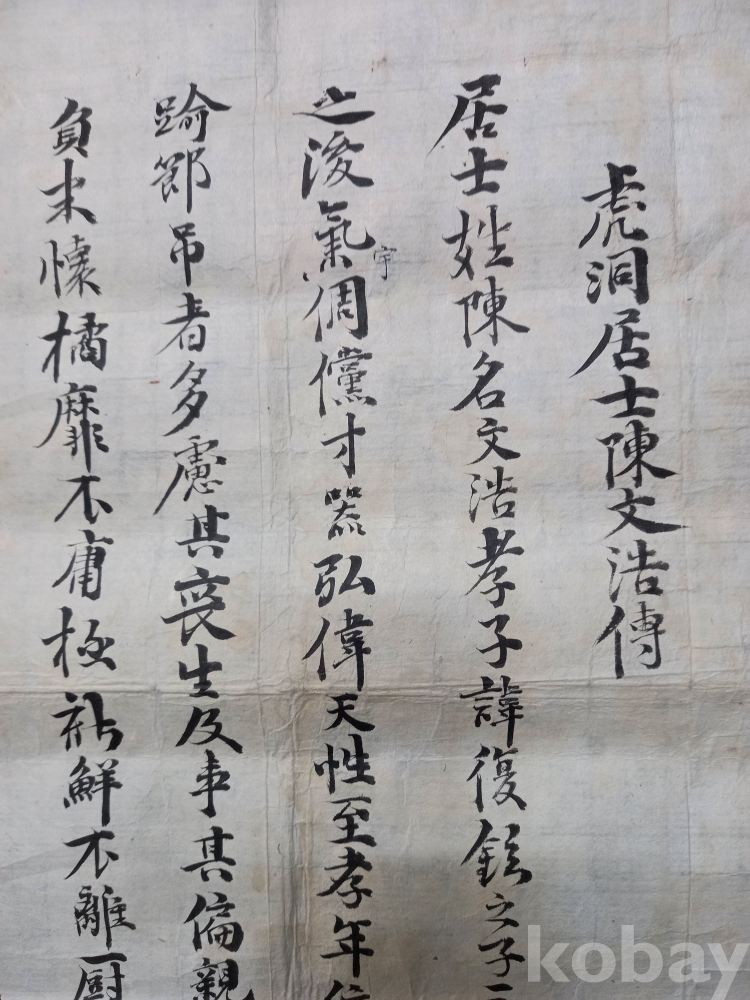 虎洞居士陳文浩傳
居士姓陳名文浩孝子諱復鉉之子
之後氣宇倜儻才器弘偉天性至孝年
踰節吊者多慮其喪生及事其偏親
負米懷橘靡不庸極 鮮不離厨
kobay